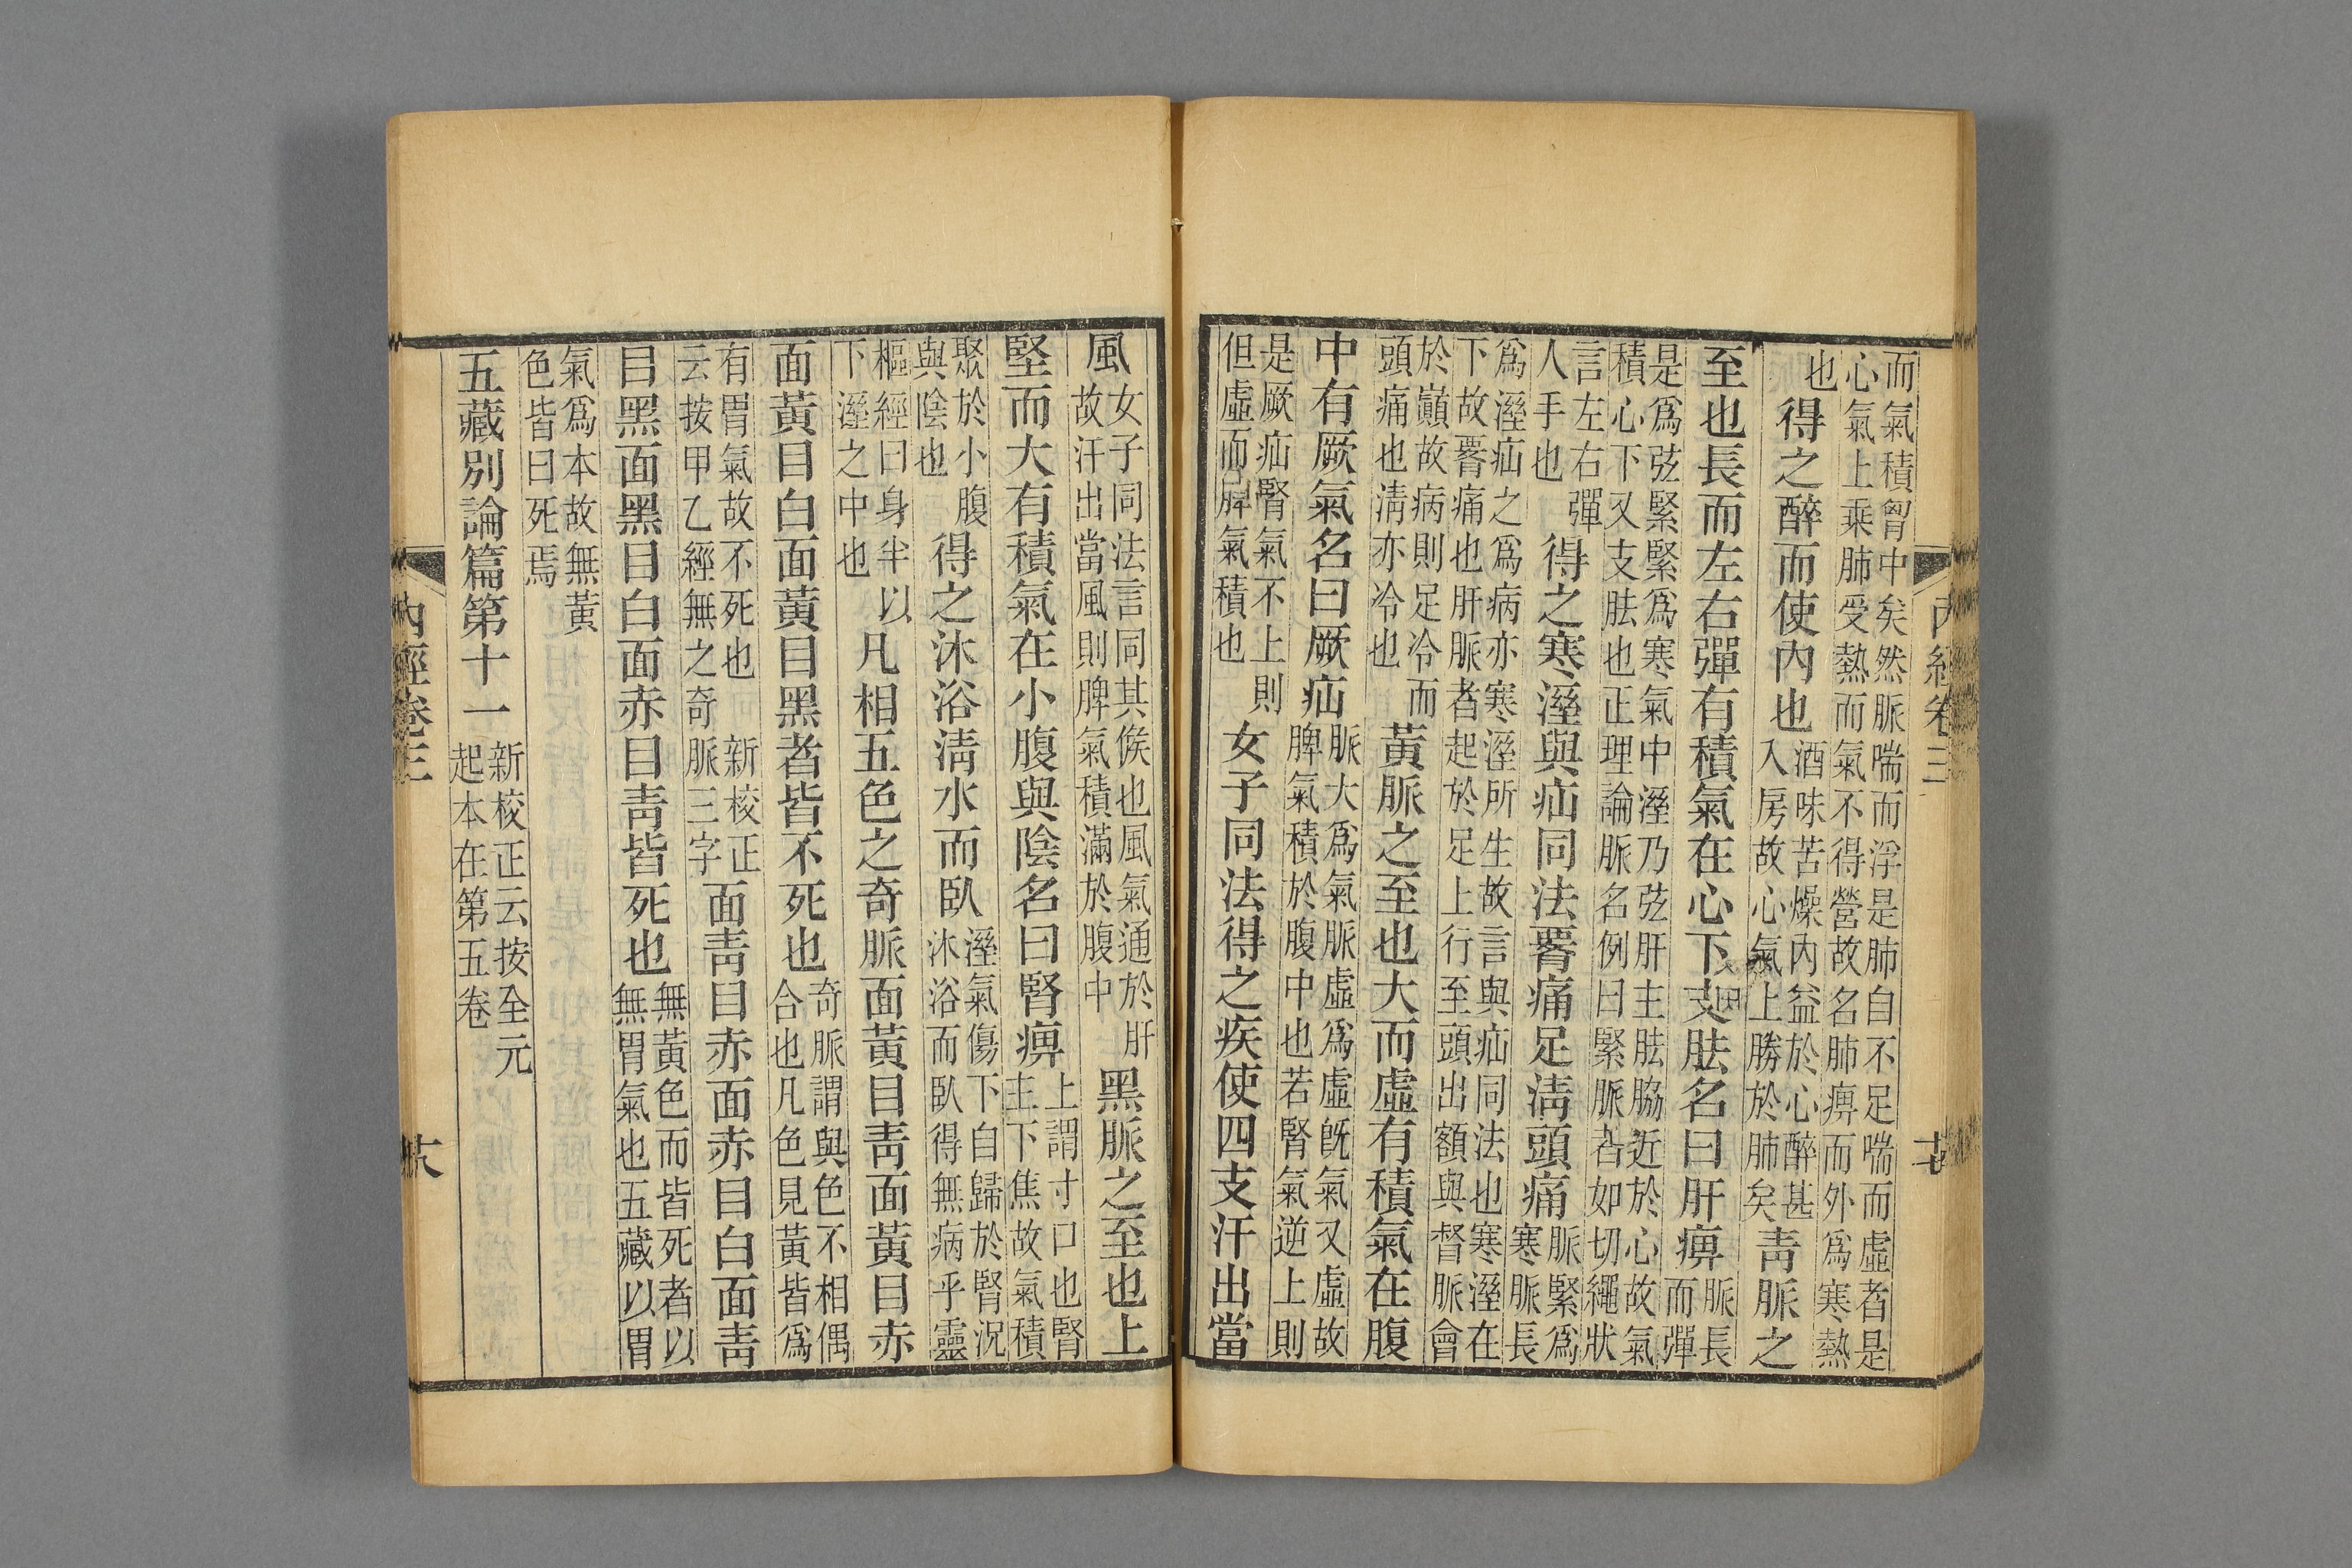 內經卷三
十七
而氣積胷中矣然脈喘而浮是肺自不足喘而虛者是
心氣上乘肺受熱而氣不得營故名肺痹而外爲寒熱
也得之醉而使內也酒味苦燥內益於心醉甚入房故心氣上勝於肺矣青脈之
至也長而左右彈有積氣在心下支胠名曰肝痹脈長而彈
是爲弦緊緊爲寒氣中溼乃弦肝主胠脇近於心故氣
積心下又支胠也正理論脈名例曰緊脈者如切繩狀
言左右彈人手也得之寒溼與疝同法腰痛足淸頭痛脈緊爲寒脈長
爲溼疝之爲病亦寒溼所生故言與疝同法也寒溼在
下故腰痛也肝脈者起於足上行至頭出額與督脈會
於巓故病則足冷而頭痛也淸亦冷也黃脈之至也大而虛有積氣在腹
中有厥氣名曰厥疝脈大爲氣脈虛爲虛旣氣又虛故脾氣積於腹中也若腎氣逆上則
是厥疝腎氣不上則但虛而脾氣積也女子同法得之疾使四支汗出當
風女子同法言同其候也風氣通於肝故汗出當風則脾氣積滿於腹中黑脈之至也上
堅而大有積氣在小腹與陰名曰腎痹上謂寸口也腎主下焦故氣積
聚於小腹與陰也得之沐浴淸水而臥溼氣傷下自歸於腎況沐浴而臥得無病乎靈
樞經曰身半以下溼之中也凡相五色之奇脈面黃目青面黃目赤
面黃目白面黃目黑者皆不死也奇脈謂與色不相偶合也凡色見黃皆爲
有胃氣故不死也新校正云按甲乙經無之奇脈三字面青目赤面赤目白面青
目黑面黑目白面赤目青皆死也無黃色而皆死者以無胃氣也五藏以胃
氣爲本故無黃色皆曰死焉
五藏別論篇第十一新校正云按全元起本在第五卷
內經卷三
十八